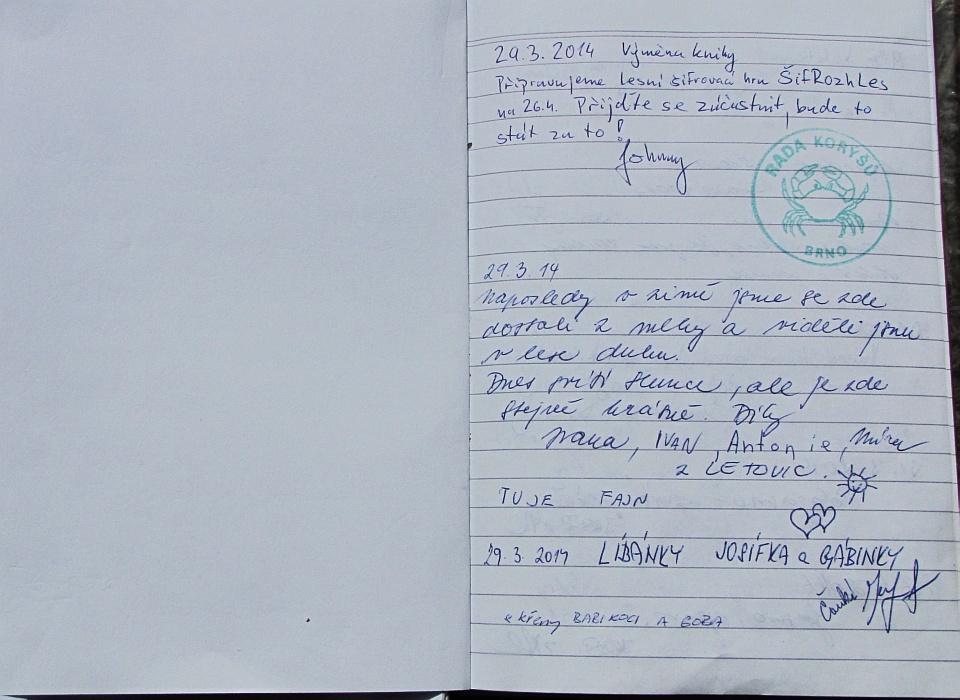 29.3.2014 Výměna knihy
Připravujeme lesní šifrovací hru ŠifRozhLes
na 26.4. Přijďte se zúčastnit, bude to
stát za to!
Johnny
RADA KORÝŠŮ
BRNO
29.3.14
Naposledy v zimě jsme se zde
dostali z mlhy a viděli jsme
v lese duhu.
Dnes svítí slunce, ale je zde
stejně krásně. Díky
Ivana, IVAN, Antonie,
z LETOVIC.
TU JE FAJN
29.3.2014 LÍBÁNKY JOSÍFKA a GÁBINKY
BABIKOCI A BOBA